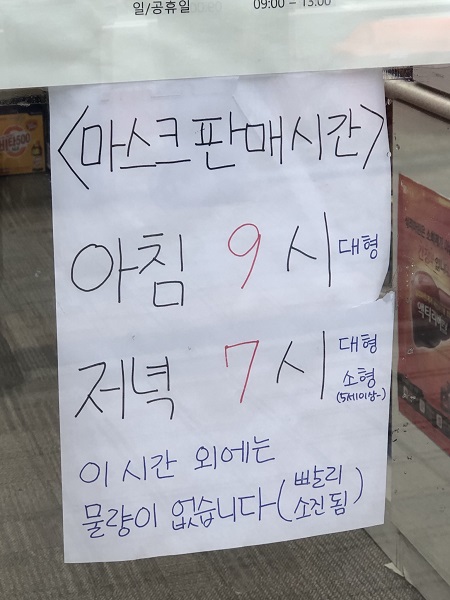 일/공휴일 09:00 – 13:00
<마스크판매시간>
아침 9시 대형
저녁 7시 대형
소형
(5세이상~)
이 시간 외에는
물량이 없습니다 (빠르게
소진됨)
비타500